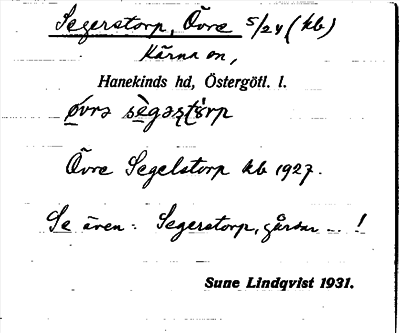 Segerstorp, Övre 5/24 (kb)
Kärna sn,
Hanekinds hd, Östergötl. l.
Övre Segelstorp kb 1927.
Se även: Segerstorp, gårdar – !
Sune Lindqvist 1931.